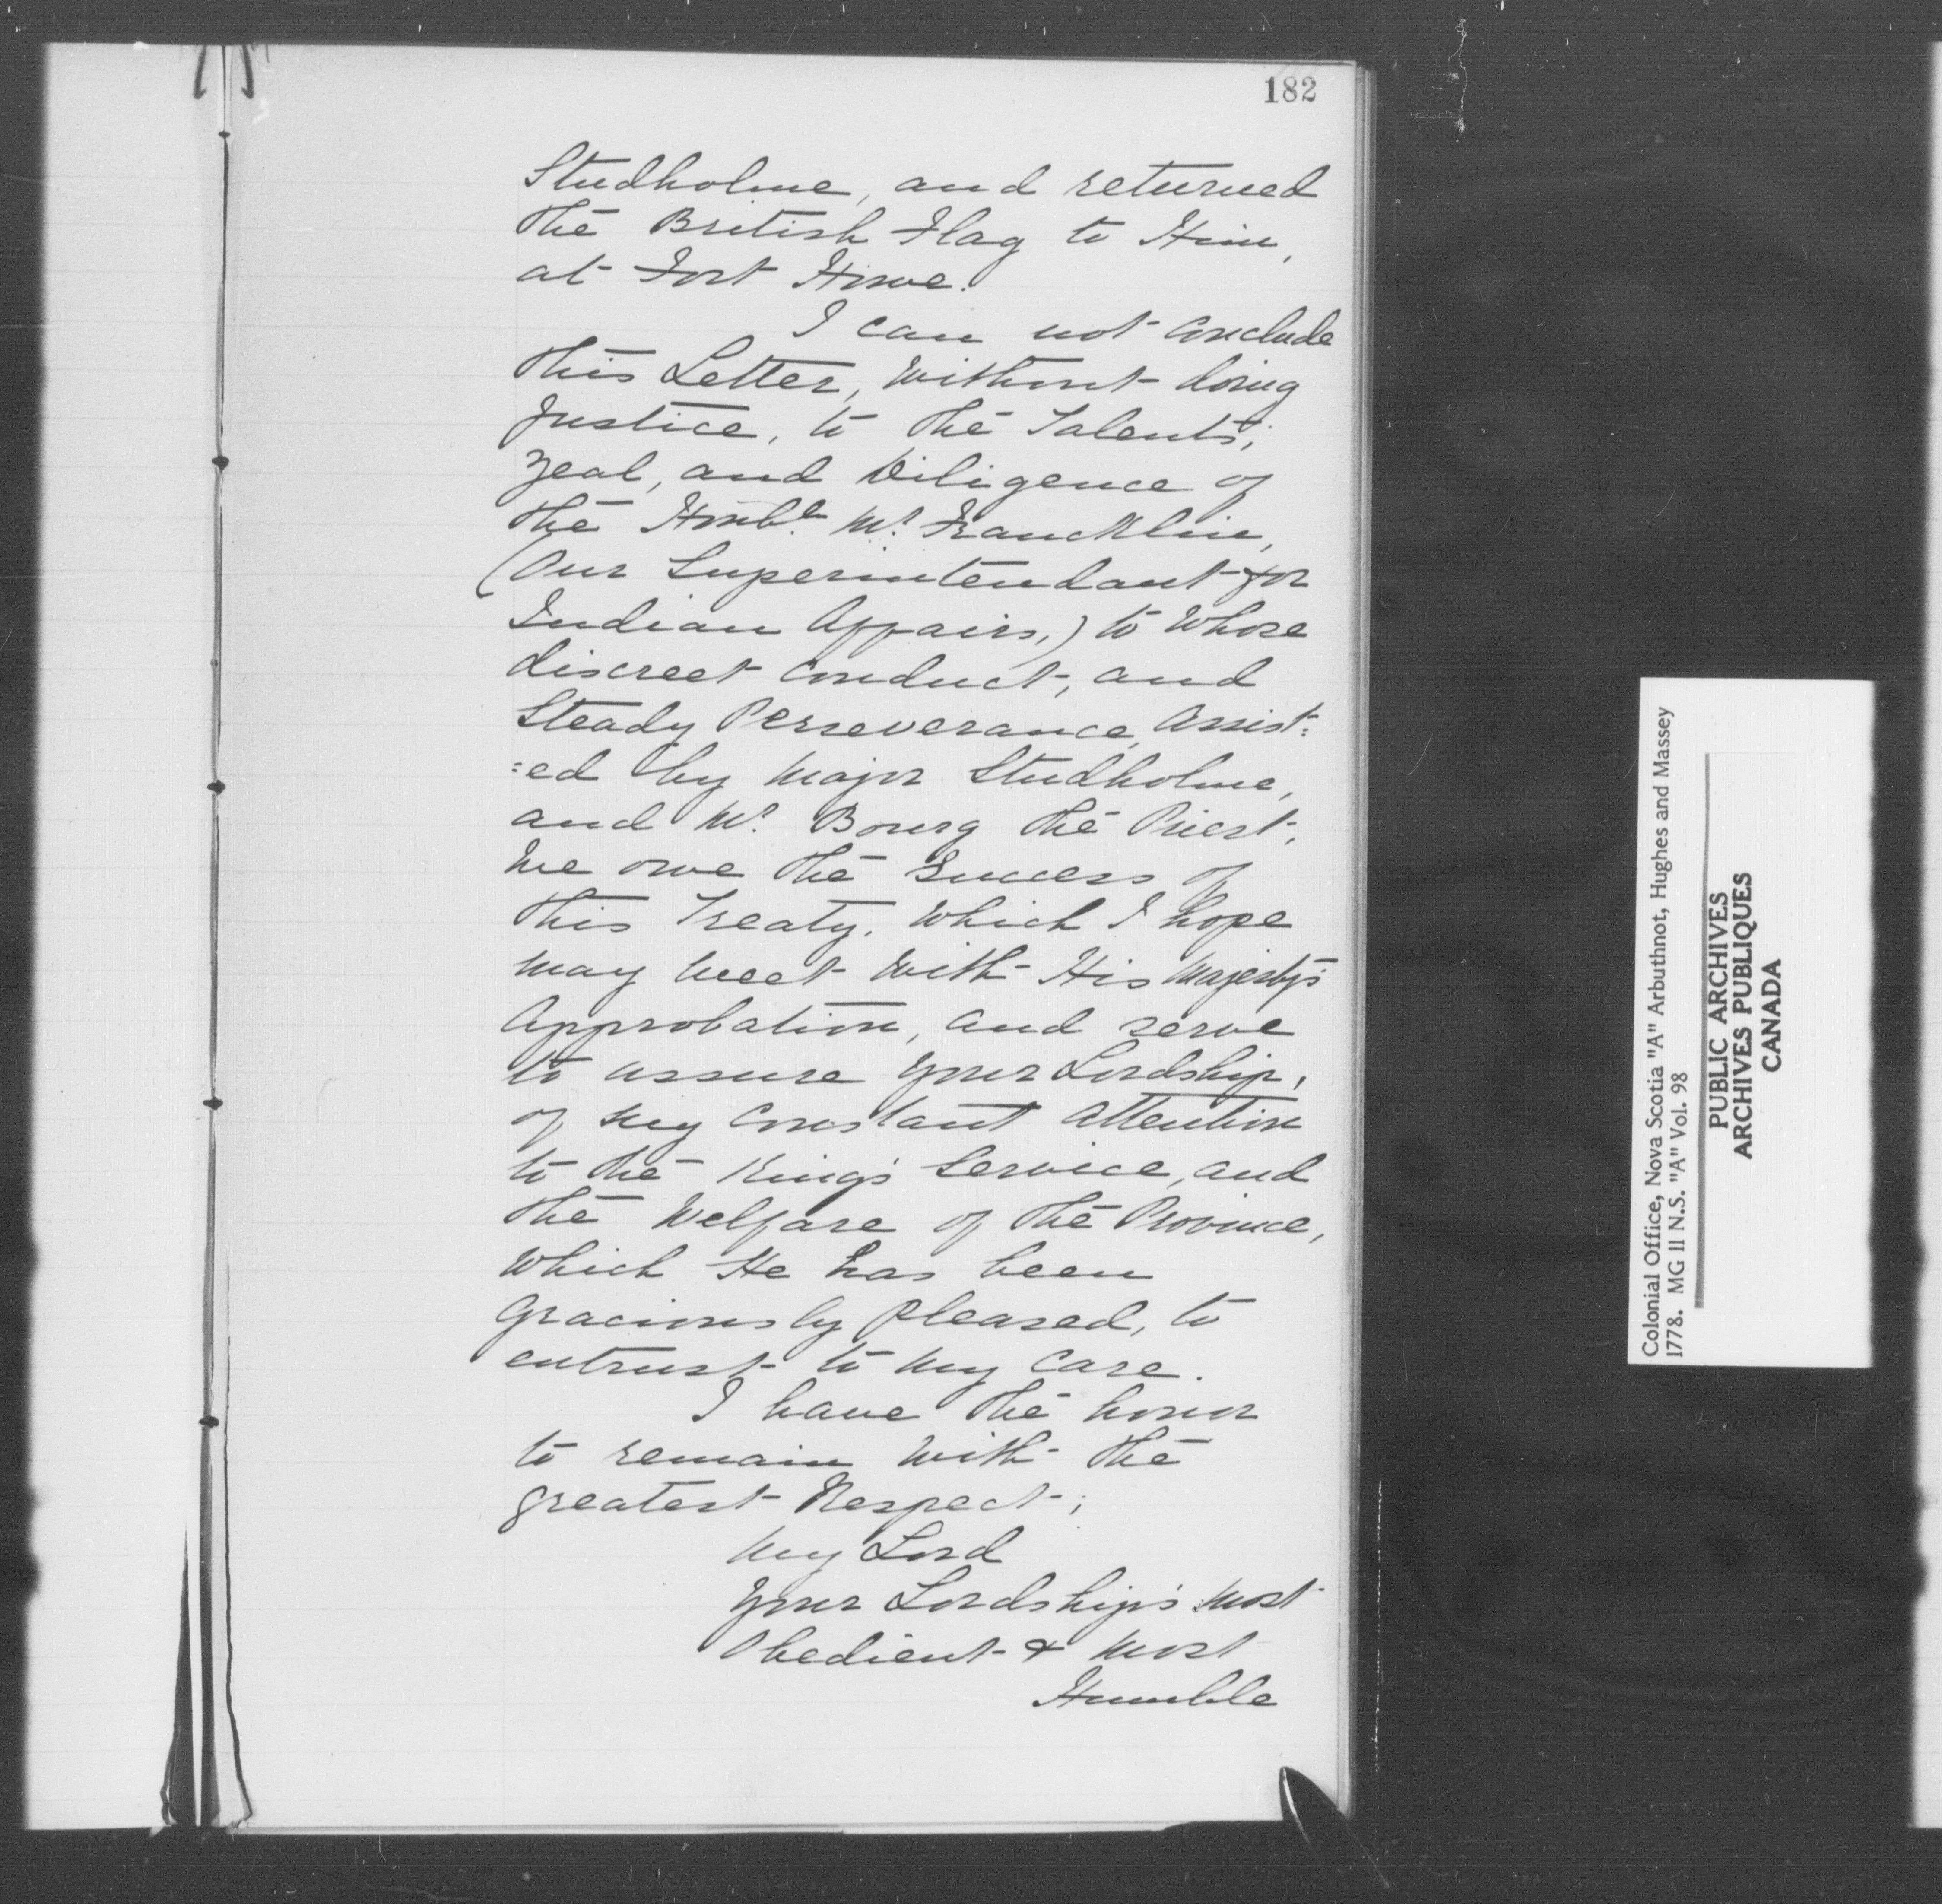 182
Studholme, and returned
the British Flag to Him,
at Fort Howe.
I can not conclude
this Letter, without doing
Justice, to the Talents,
Zeal, and Diligence of
the Honble Mr. Francklin,
(Our Superintendant for
Indian Affairs,) to Whose
discreet Conduct, and
Steady Perseverance, Assist:
:ed by Major Studholme,
and Mr. Bourg the Priest,
We owe the Success of
this Treaty. Which I hope
may meet with His Majesty's
Approbation, and serve
to assure Your Lordship,
of my Constant Attention
to the King's Service, and
the Welfare of the Province,
Which He has been
Graciously pleased, to
entrust to my Care.
I have the honor
to remain with the
greatest Respect,
My Lord
Your Lordship's most
Obedient & most
Humble
Colonial Office, Nova Scotia "A" Arbuthnot, Hughes and Massey
1778. MG 11 N.S. "A" Vol. 98
PUBLIC ARCHIVES
ARCHIVES PUBLIQUES
CANADA